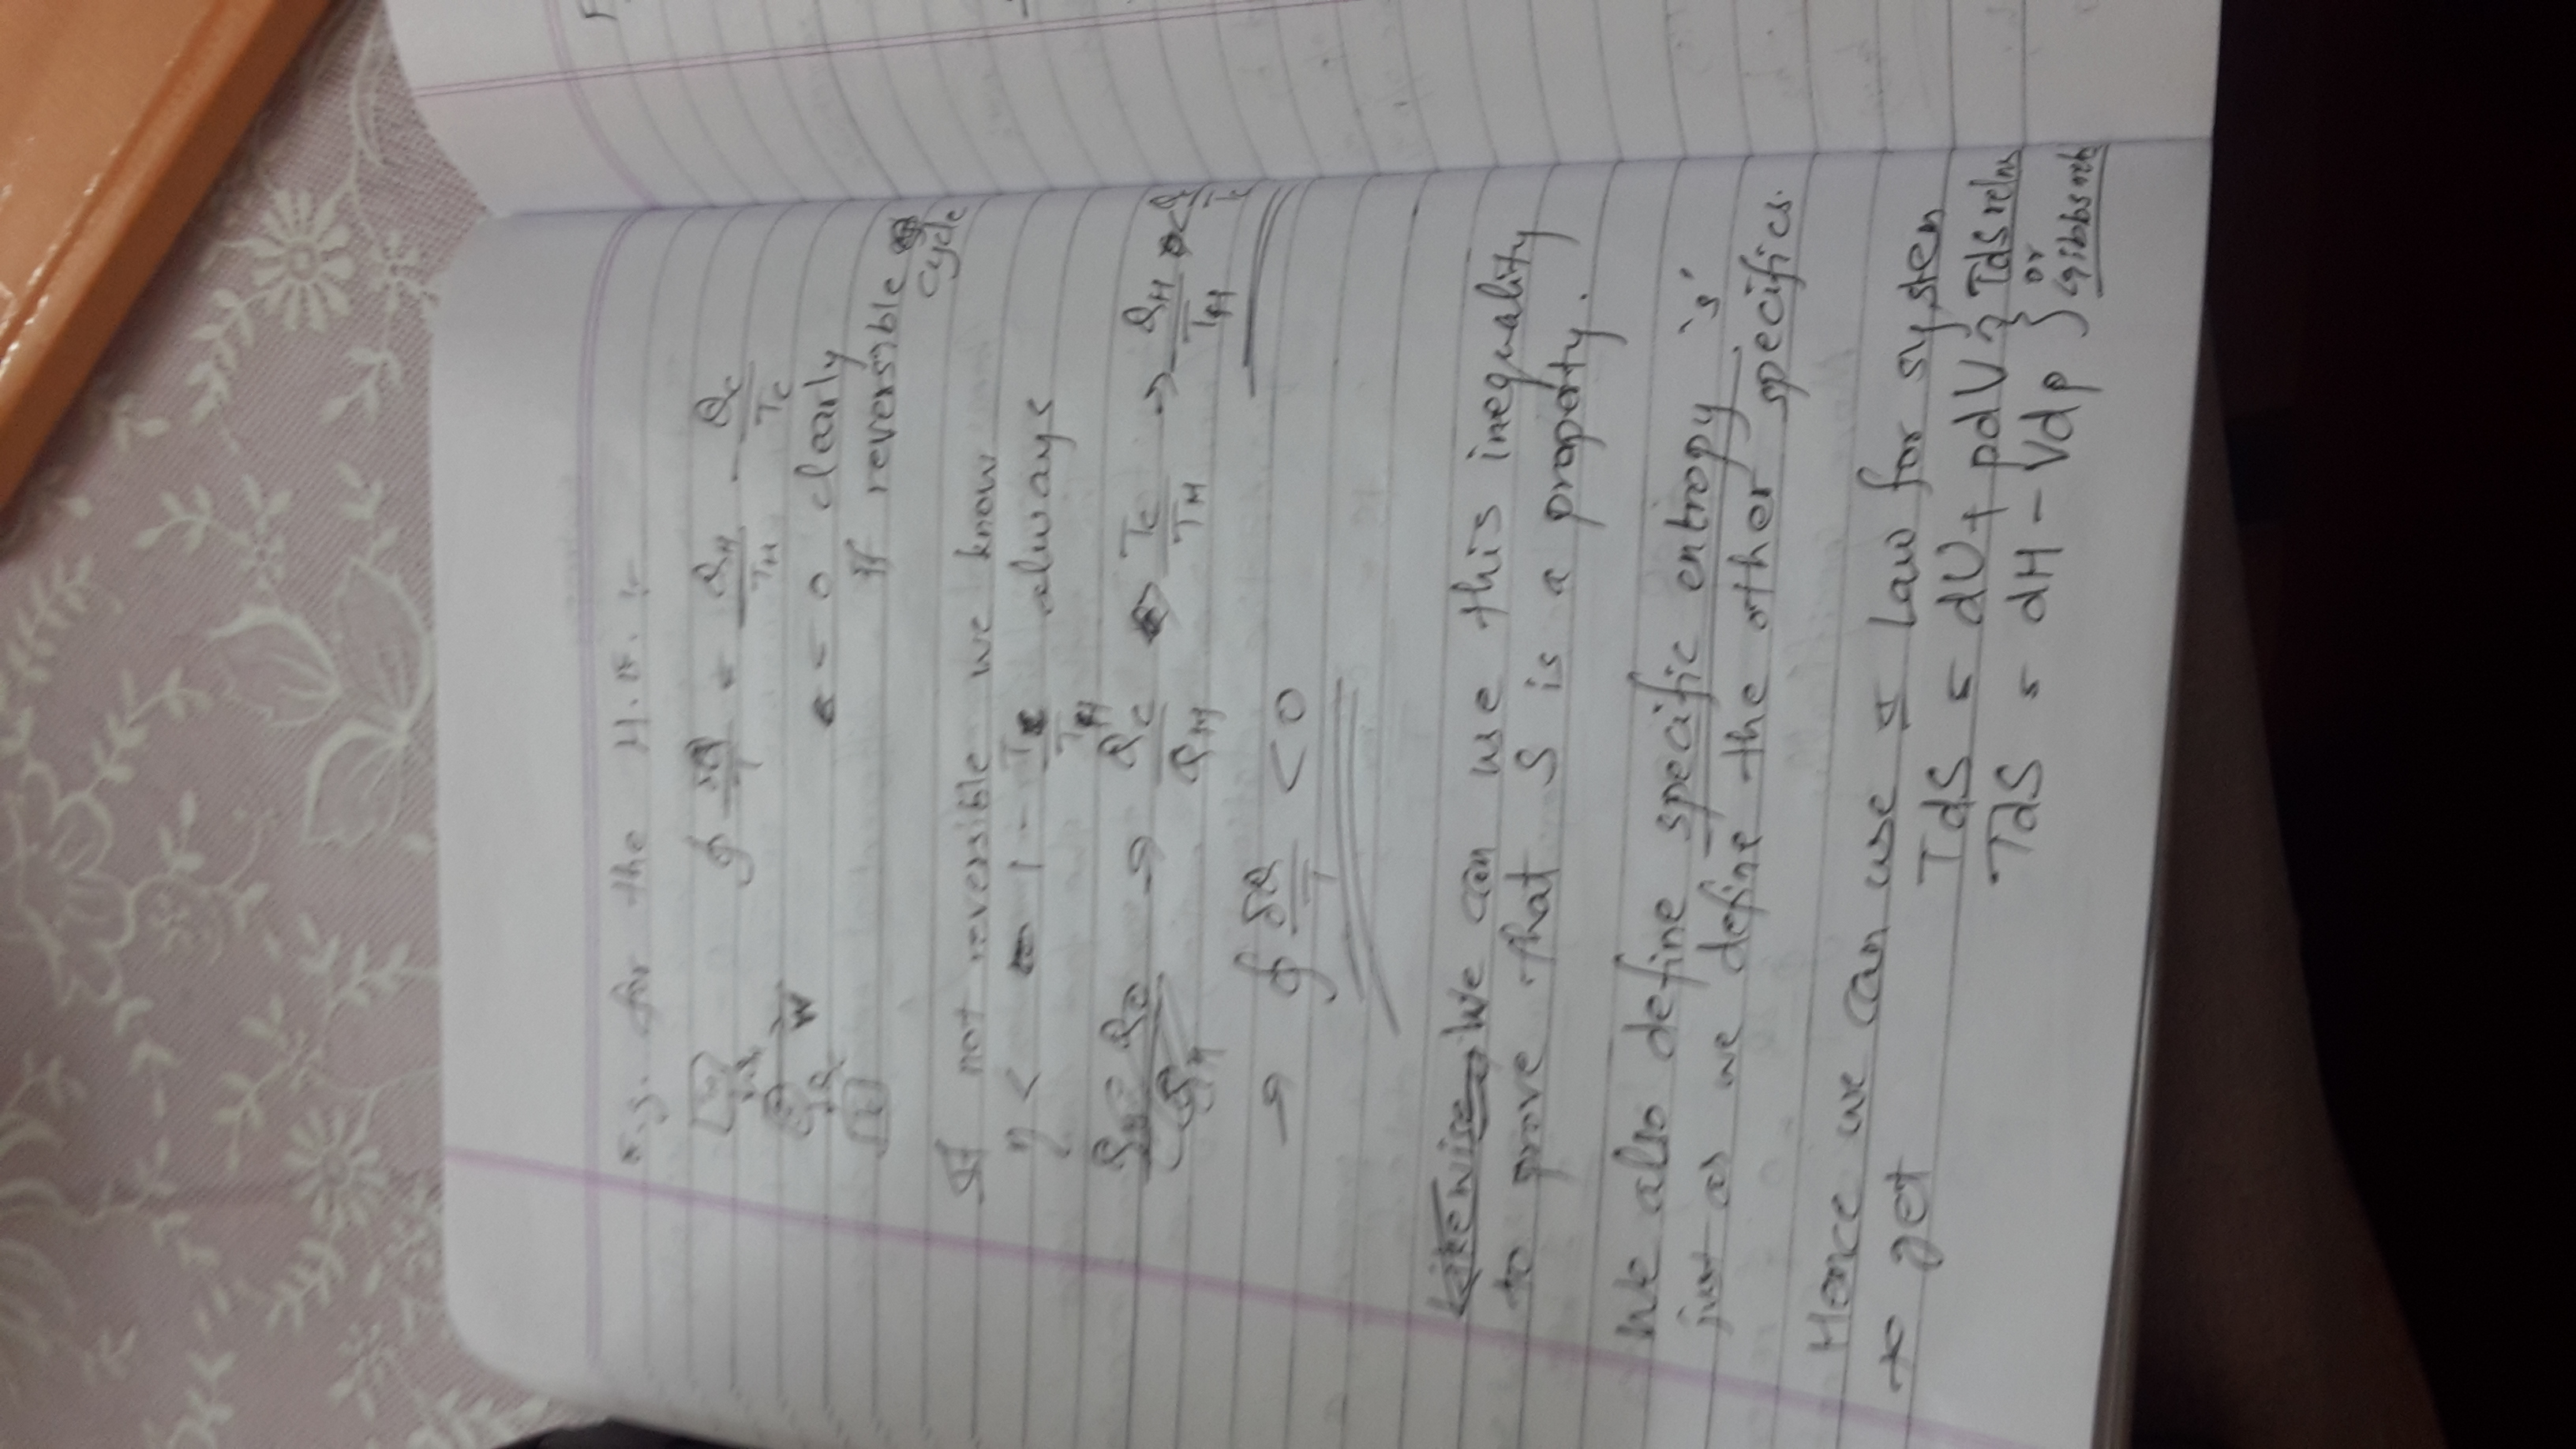 E.g. for the H.E. :-
T_H
Q_H
W
Q_C
T_C
∮ δQ/T = Q_H/T_H - Q_C/T_C
= 0 clearly
if reversible
cycle
If not reversible we know
η < 1 - T_C/T_H always
→ Q_C/Q_H > T_C/T_H → Q_H/T_H < Q_C/T_C
→ ∮ δQ/T < 0
Likewise We can use this inequality
to prove that S is a property.
We also define specific entropy 's'
just as we define the other specifics.
Hence we can use I law for system
to get
TdS = dU + pdV } TdS relns
TdS = dH - Vdp } or Gibbs